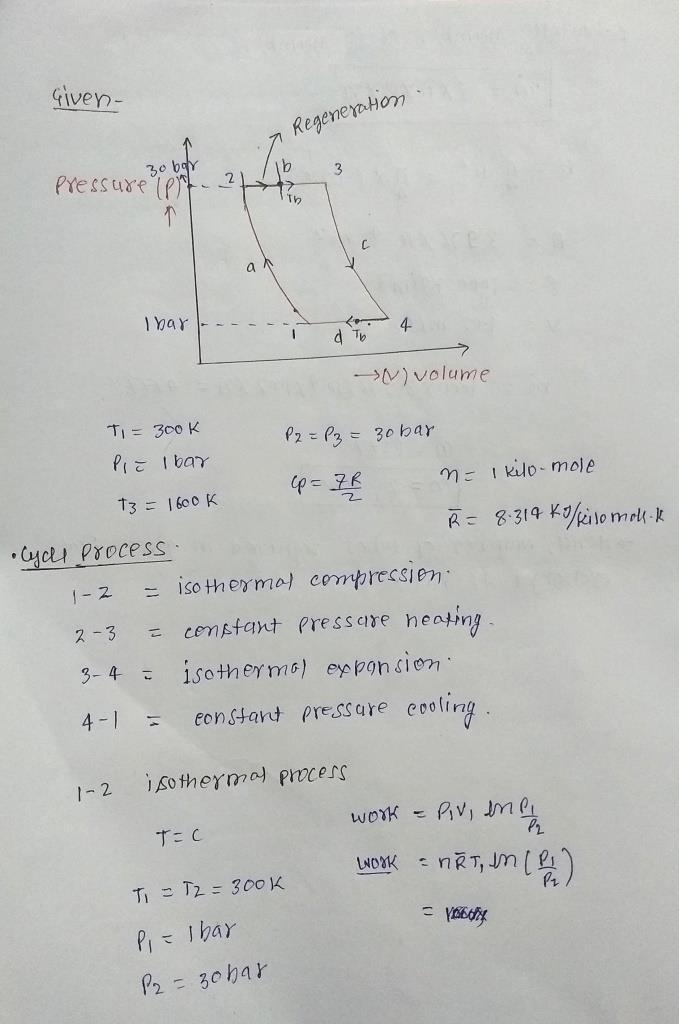 Given-
Regeneration
30 bar
Pressure (P)
2
b
3
Tb
a
c
1 bar
1
d
Tb
4
→(V) volume
T1 = 300 K
P2 = P3 = 30 bar
P1 = 1 bar
Cp = 7R/2
n = 1 kilo-mole
T3 = 1600 K
R̄ = 8.314 KJ/kilomole-k
• Cycle process
1-2 = isothermal compression.
2-3 = constant pressure heating.
3-4 = isothermal expansion.
4-1 = constant pressure cooling.
1-2 isothermal process
Work = P1V1 ln P1/P2
T = C
Work = nR̄T1 ln (P1/P2)
T1 = T2 = 300K
=
P1 = 1 bar
P2 = 30 bar